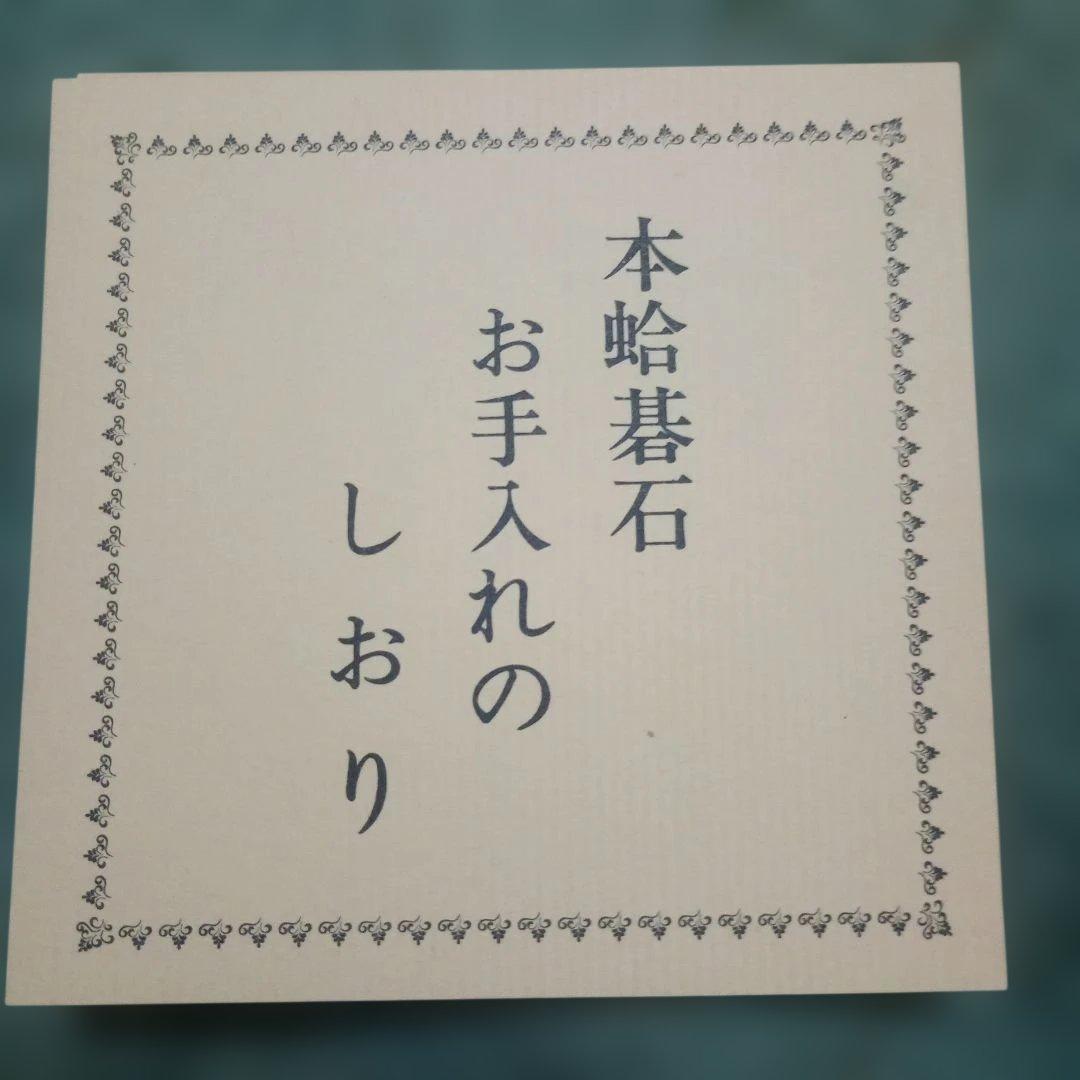 本蛤碁石
お手入れの
しおり